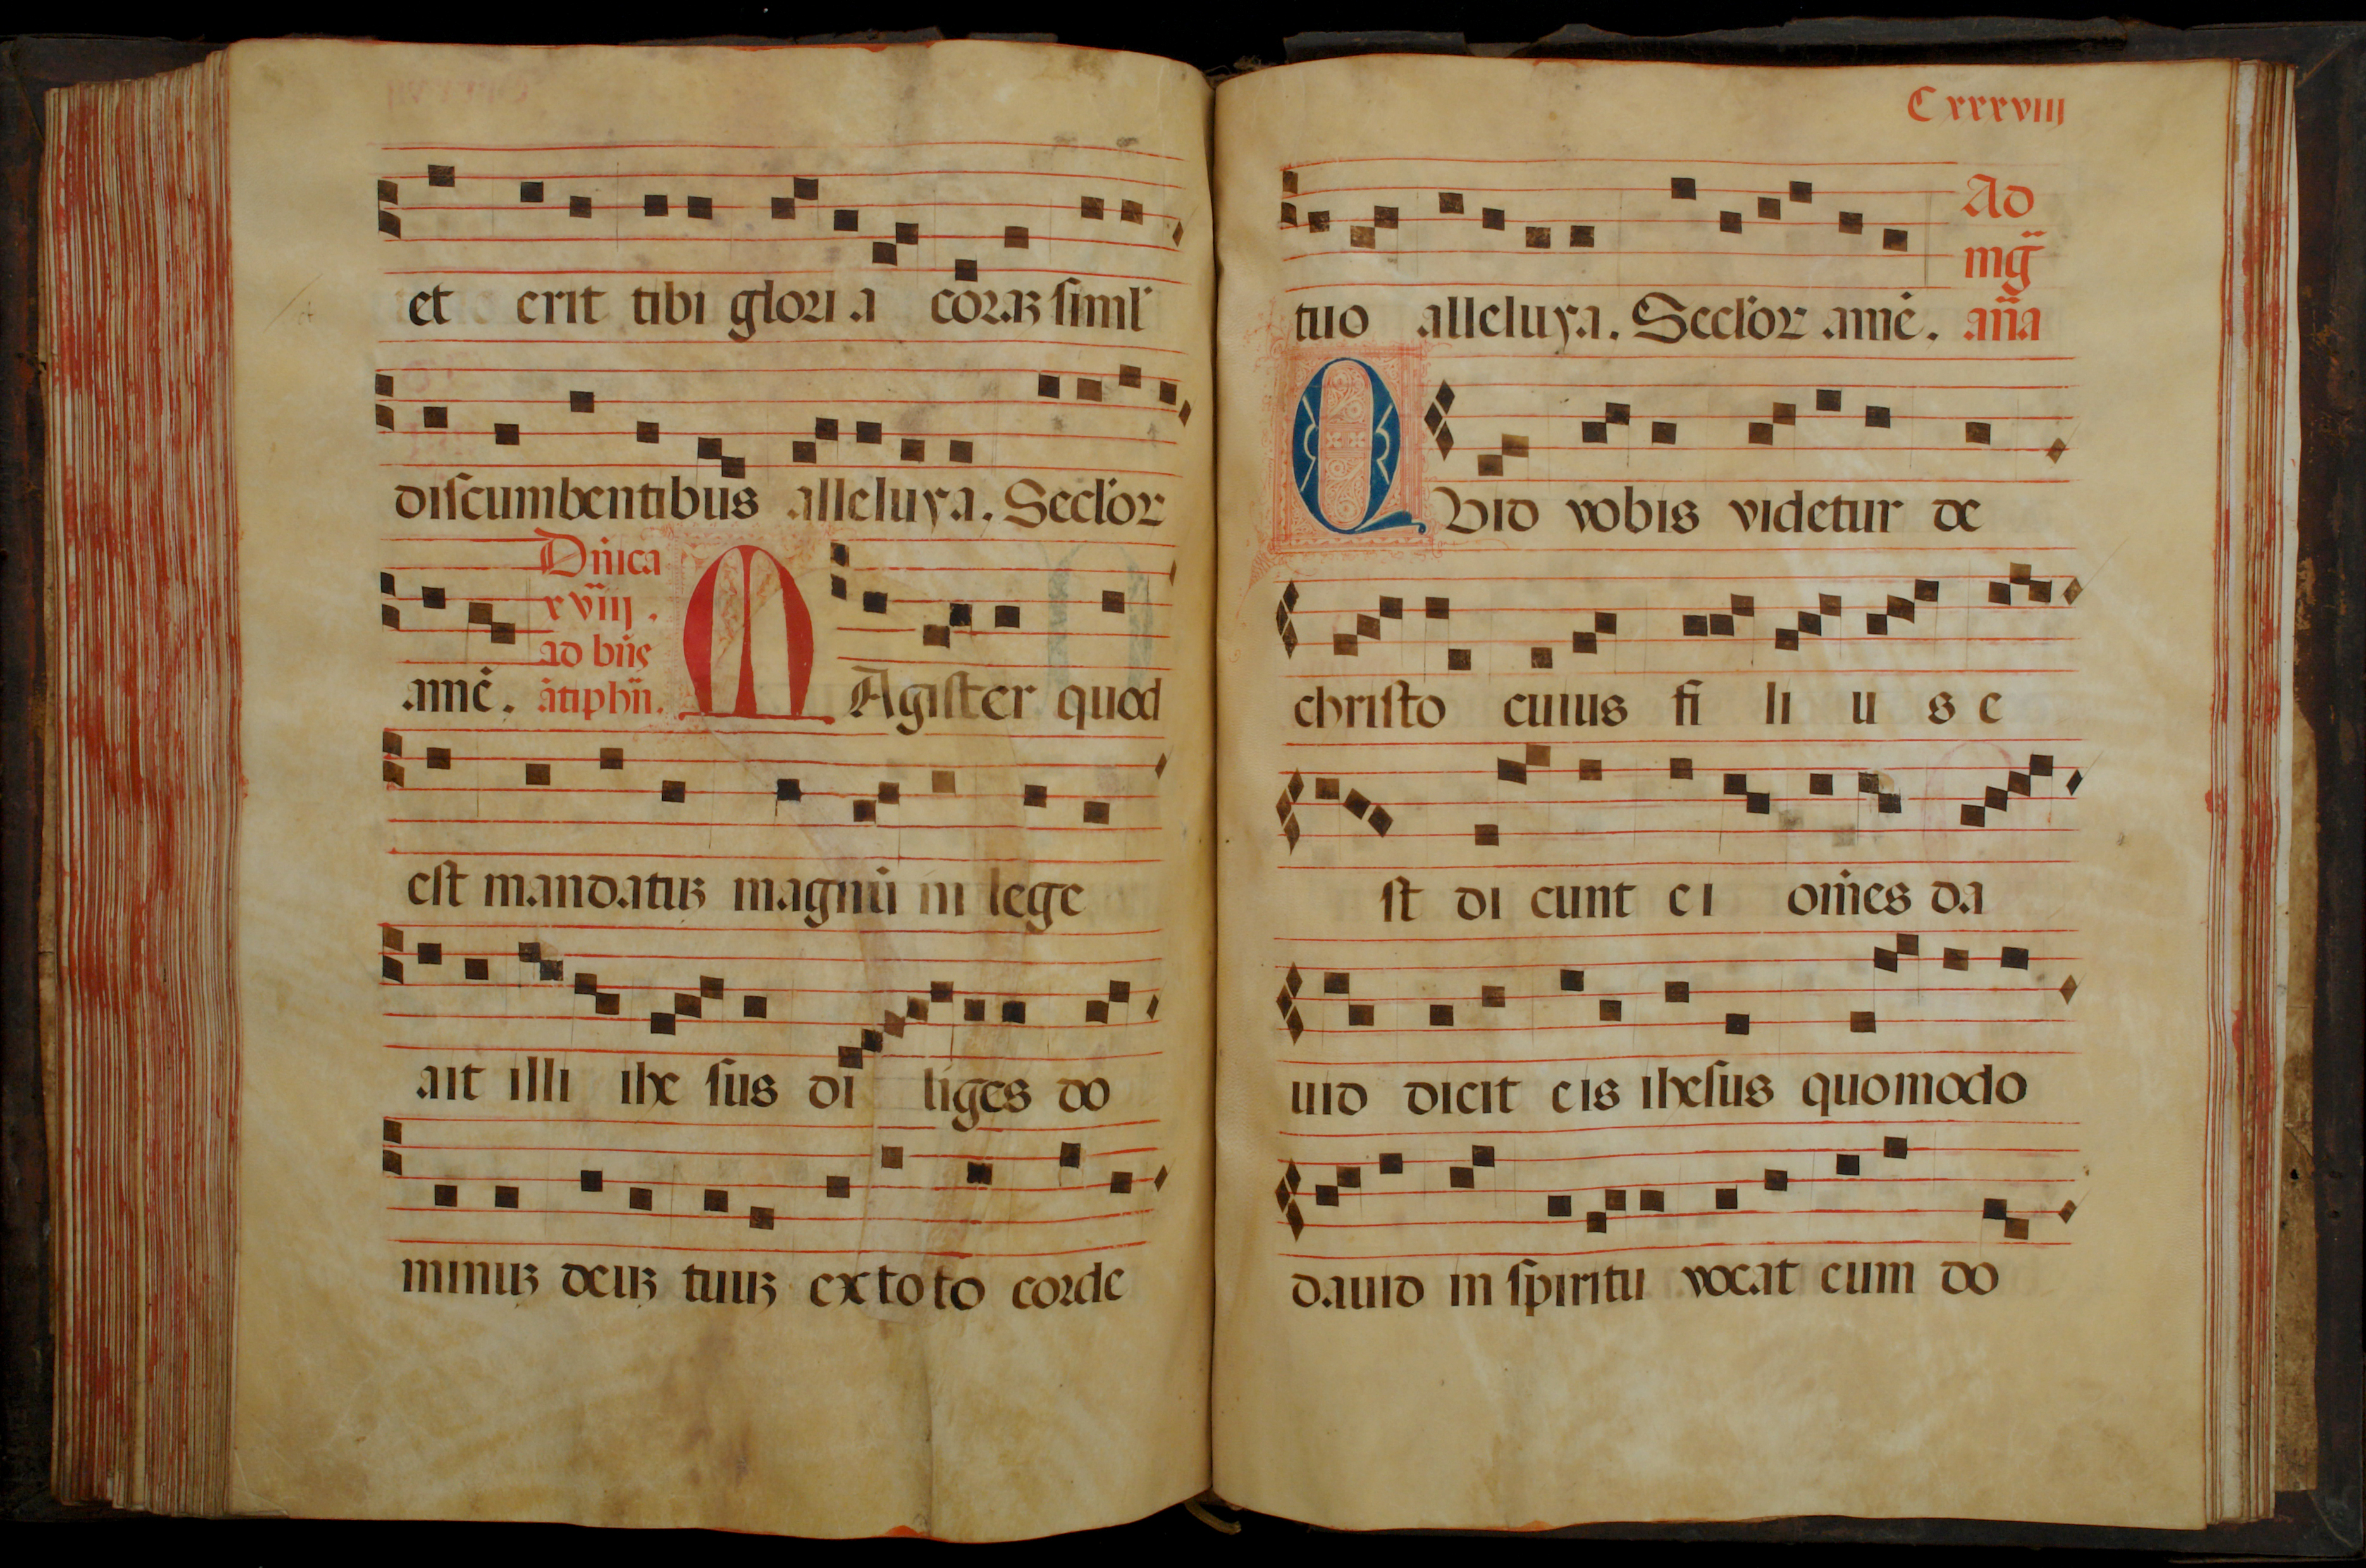 et erit tibi glori a coraꝫ siml'
discumbentibus alleluya. Secl'or
Dn̄ica
xviiij.
ad bn̄s
amē. ātiphn̄. MAgister quod
est mandatuꝫ magnū in lege
ait illi ihe sus di liges do
minuꝫ deuꝫ tuuꝫ ex to to corde
Cxxxviiij
Ad
mḡ
tuo alleluya. Secl'or amē. an̄a
QVid vobis videtur de
christo cuius fi li u s e
st di cunt e i om̄es da
uid dicit eis ihesus quomodo
dauid in spiritu vocat eum do